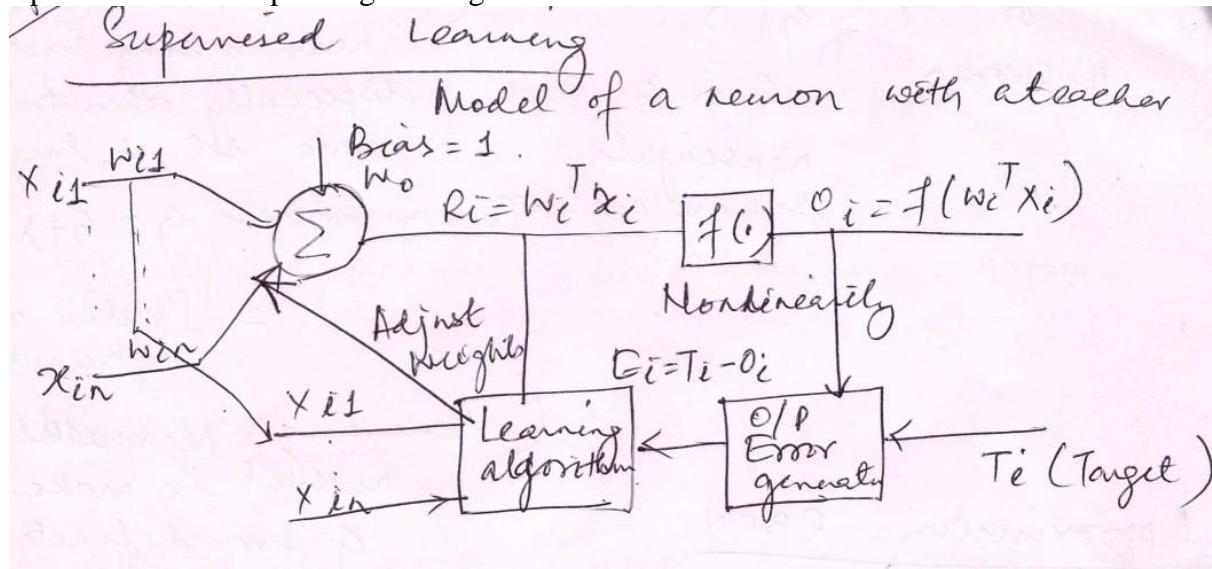 Supervised Learning
Model of a neuron with a teacher
Bias = 1.
w0
xi1
wi1
Σ
Ri = wi^T xi
f(.)
Oi = f(wi^T xi)
Nonlinearity
win
xin
Adjust
Weights
Ei = Ti - Oi
xi1
xin
Learning
algorithm
O/P
Error
generator
Ti (Target)